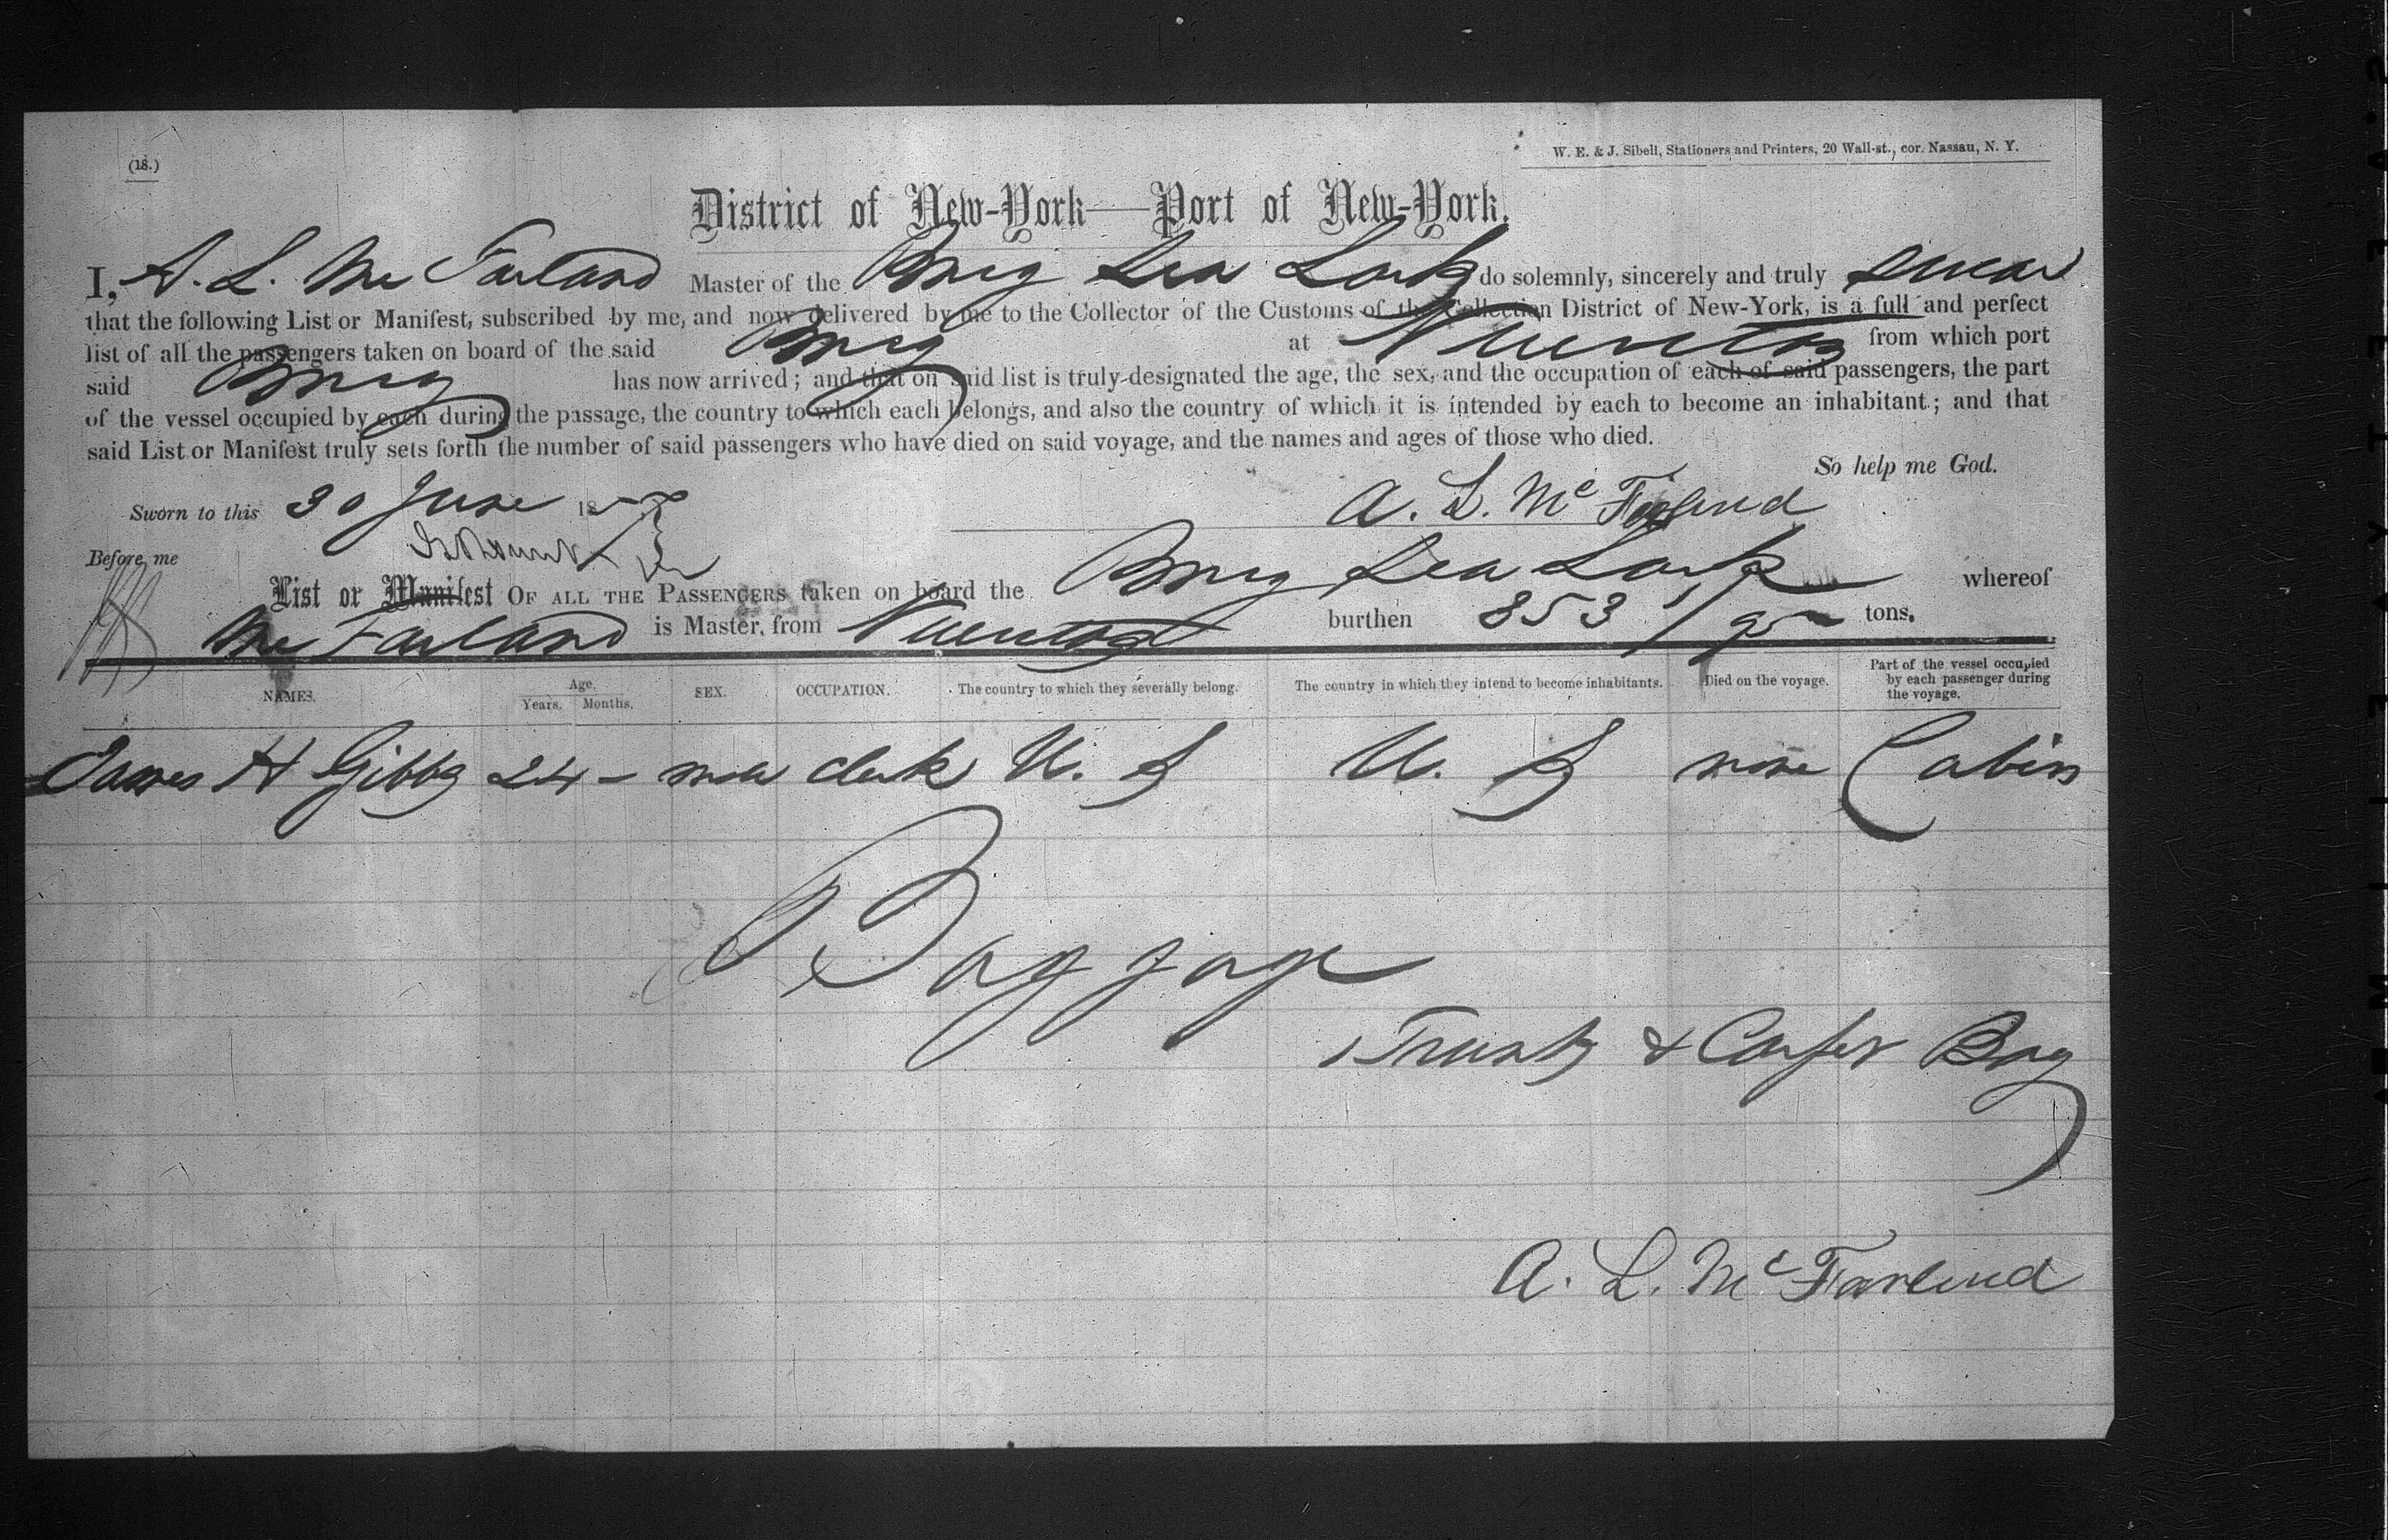 (18.)
W. E. & J. Sibell, Stationers and Printers, 20 Wall-st., cor. Nassau, N. Y.
District of New-York—Port of New-York.
I, A. L. McFarland Master of the Brig Sea Lark do solemnly, sincerely and truly swear
that the following List or Manifest, subscribed by me, and now delivered by me to the Collector of the Customs of the Collection District of New-York, is a full and perfect
list of all the passengers taken on board of the said Brig at Nuevitas from which port
said Brig has now arrived; and that on said list is truly designated the age, the sex, and the occupation of each of said passengers, the part
of the vessel occupied by each during the passage, the country to which each belongs, and also the country of which it is intended by each to become an inhabitant; and that
said List or Manifest truly sets forth the number of said passengers who have died on said voyage, and the names and ages of those who died.
So help me God.
Sworn to this 30 June 185
A. L. McFarland
Before me
List or Manifest OF ALL THE PASSENGERS taken on board the Brig Sea Lark whereof
McFarland is Master, from Nuevitas burthen 253 /95 tons.
NAMES. Age. Years. Months. SEX. OCCUPATION. The country to which they severally belong. The country in which they intend to become inhabitants. Died on the voyage. Part of the vessel occupied by each passenger during the voyage.
James H Gibbs 24 - male clerk U. S U. S none Cabin
Baggage
1 Trunk & Carpet Bag
A. L. McFarland